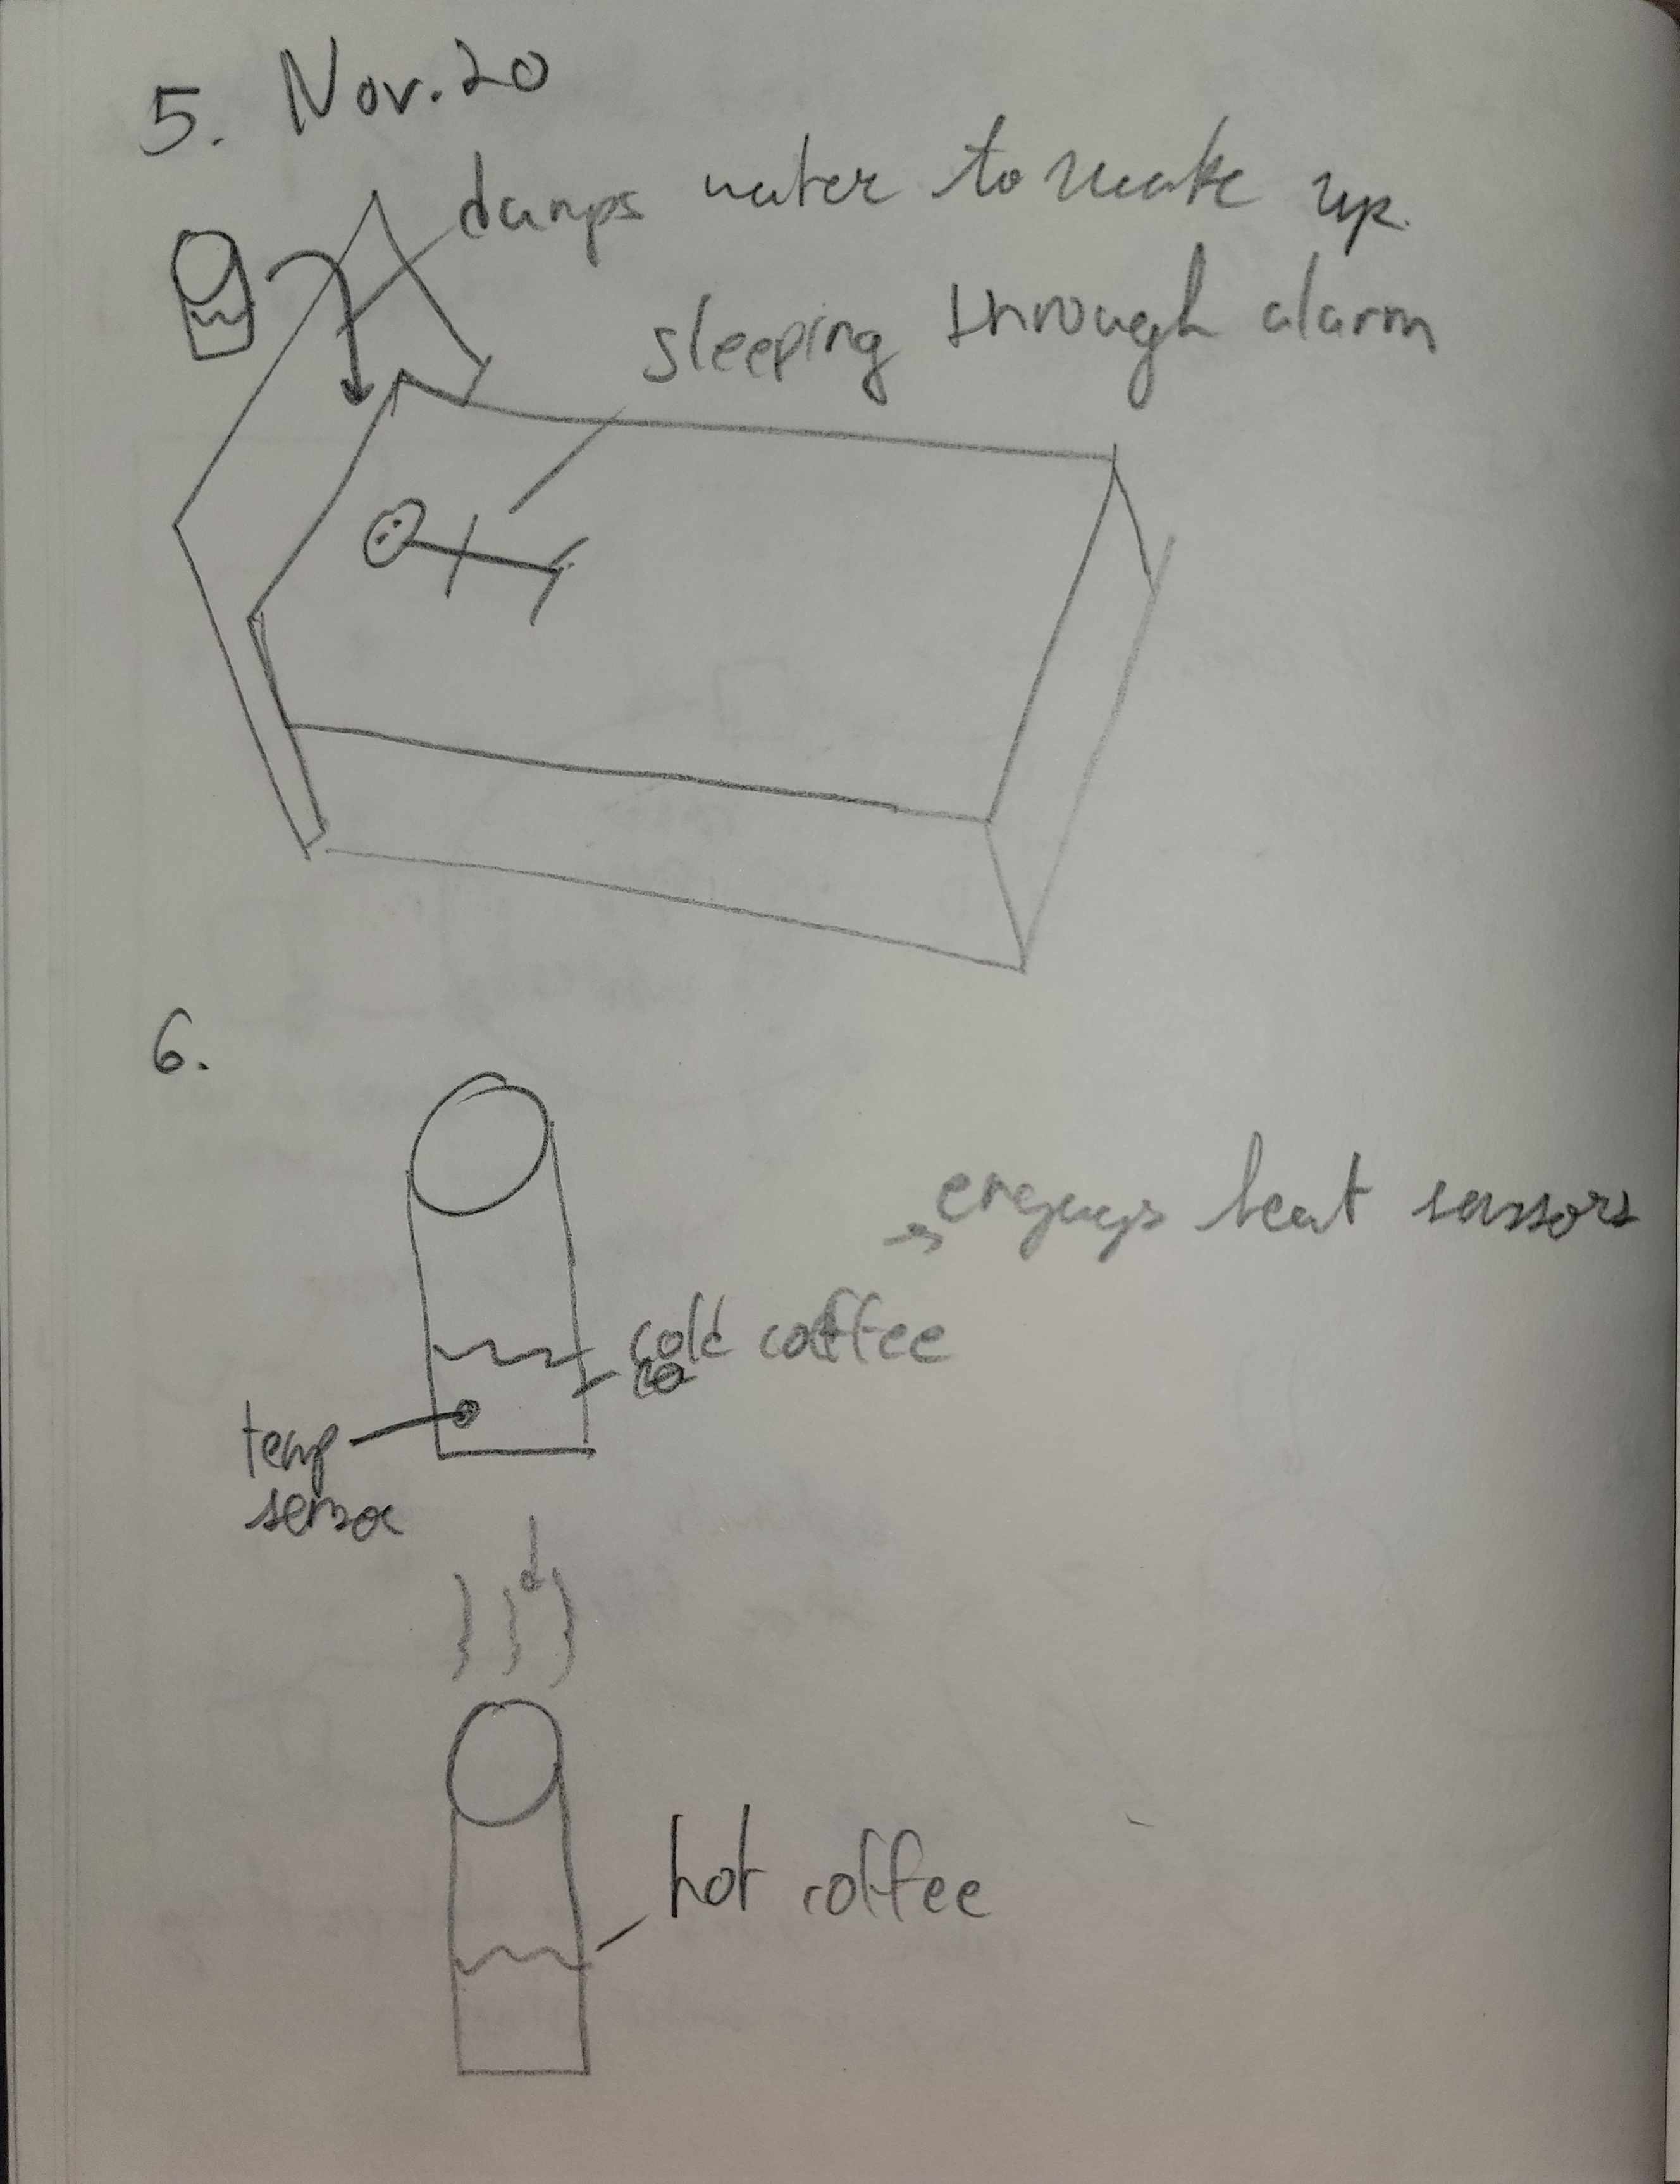 5. Nov. 20
dumps water to wake up.
sleeping through alarm
6.
→ engages heat sensors
cold coffee
co
temp
sensor
hot coffee